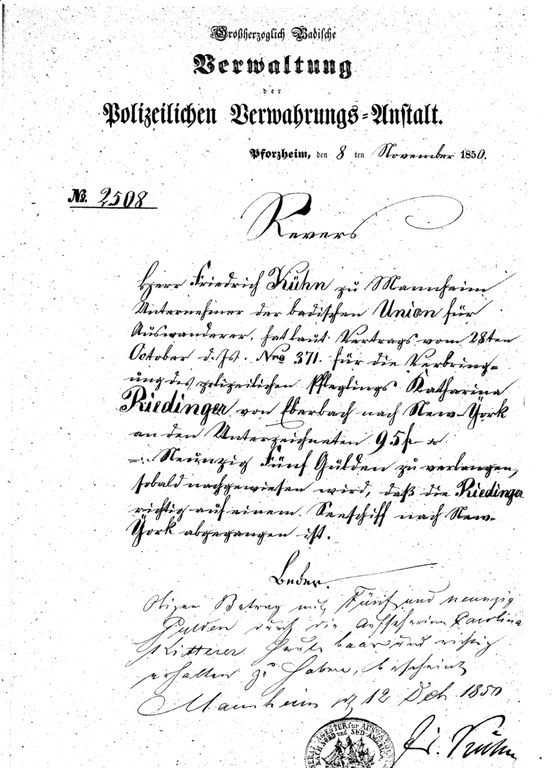 Großherzoglich Badische
Verwaltung
der
Polizeilichen Verwahrungs-Anstalt.
Pforzheim, den 8 ten November 1850.
No. 2508
Revers
Herr Friedrich Kühn zu Mannheim
Unternehmer der badischen Union für
Auswanderer, hat laut Vertrags vom 28ten
October d. Js. Nro 371. für die Verbring-
ung des polizeilichen Pfleglings Katharina
Riedinger von Eberbach nach New-York
an den Unterzeichneten 95 f
Neunzig Fünf Gulden zu verlangen,
sobald nachgewiesen wird, daß die Riedinger
richtig auf einem Seeschiff nach New-
York abgegangen ist.
Obigen Betrag mit Fünf und neunzig
Gulden durch die Aufseherin Carolina
Kitterer heute baar und richtig
erhalten zu haben, bescheint
Mannheim d 12 Dcb. 1850
Fr. Kühn